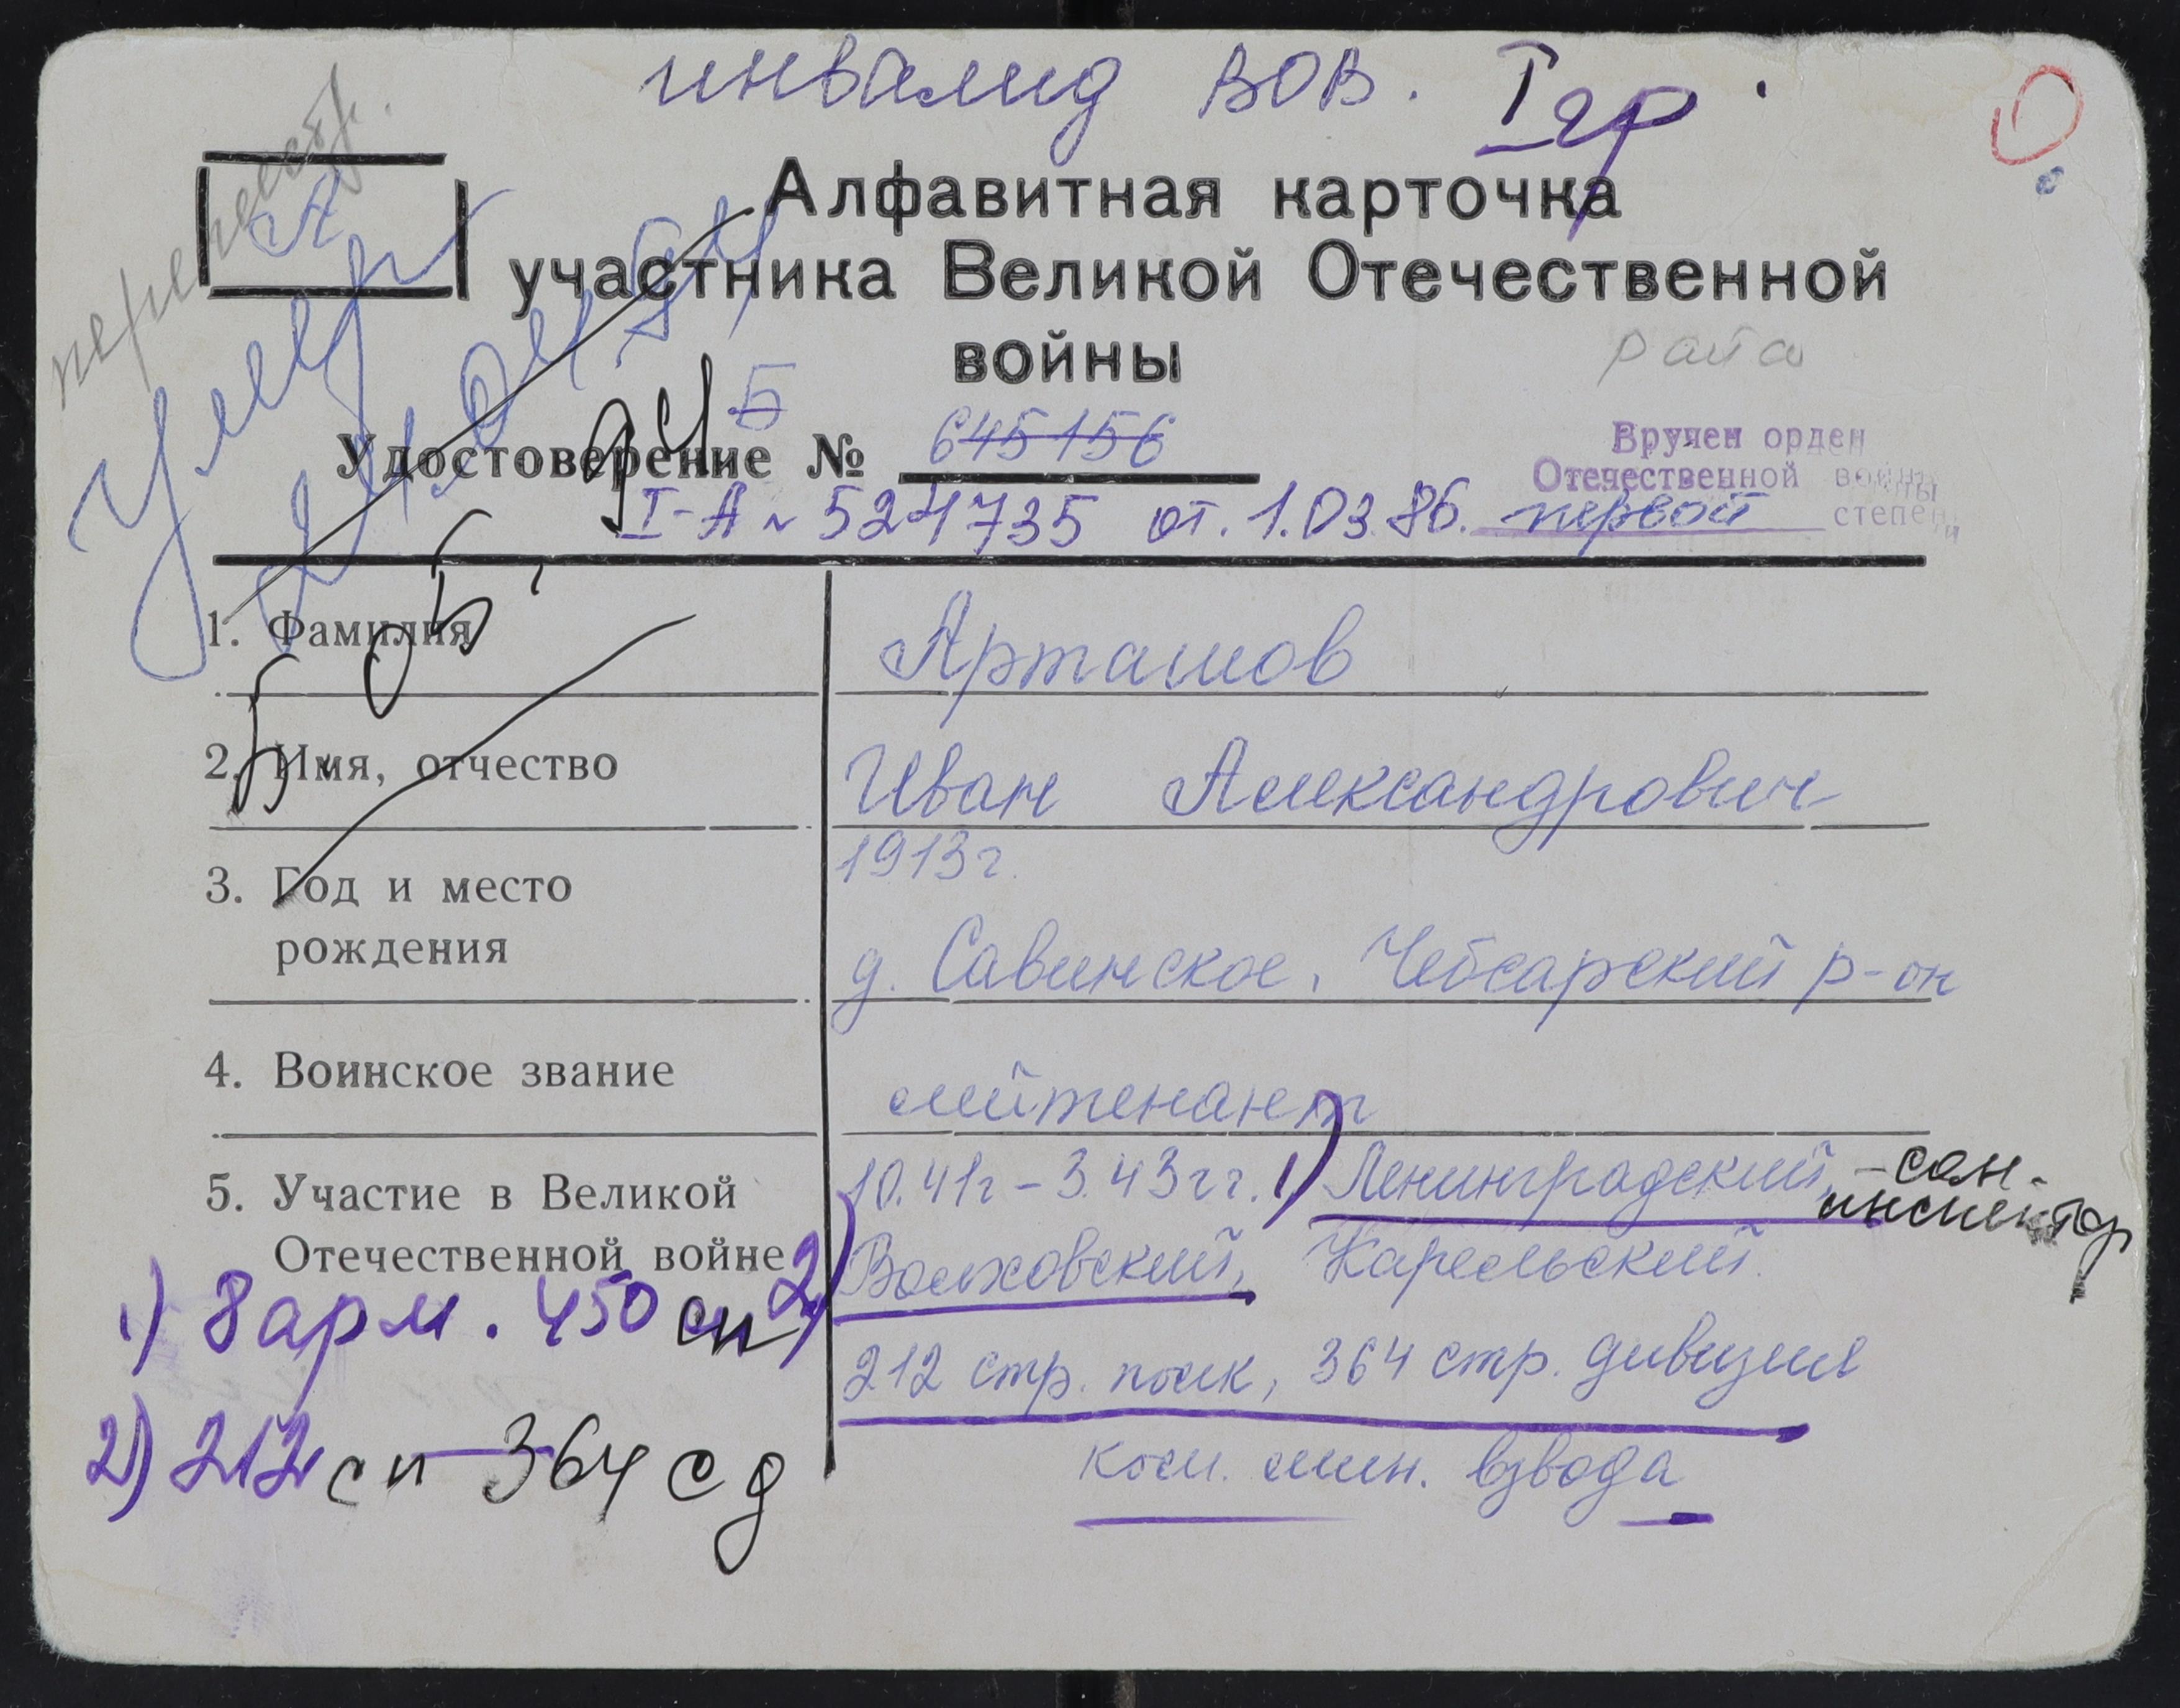 инвалид ВОВ. I гр.
А
Умер
Алфавитная карточка
участника Великой Отечественной
войны
Б
Удостоверение № 645156
I-А № 524735 от. 1.03.86.
Вручен орден
Отечественной войны
первой степени
1. Фамилия
Арташов
2. Имя, отчество
Иван Александрович
3. Год и место
рождения
1913г.
д. Савинское, Чебсарский р-он
4. Воинское звание
лейтенант
5. Участие в Великой
Отечественной войне
10.41г - 3.43гг. 1) Ленинградский, - сан.
инспектор
2) Волховский, Карельский.
212 стр. полк, 364 стр. дивизия
ком. мин. взвода
1) 8 арм. 450 сп
2) 212 сп 364 сд